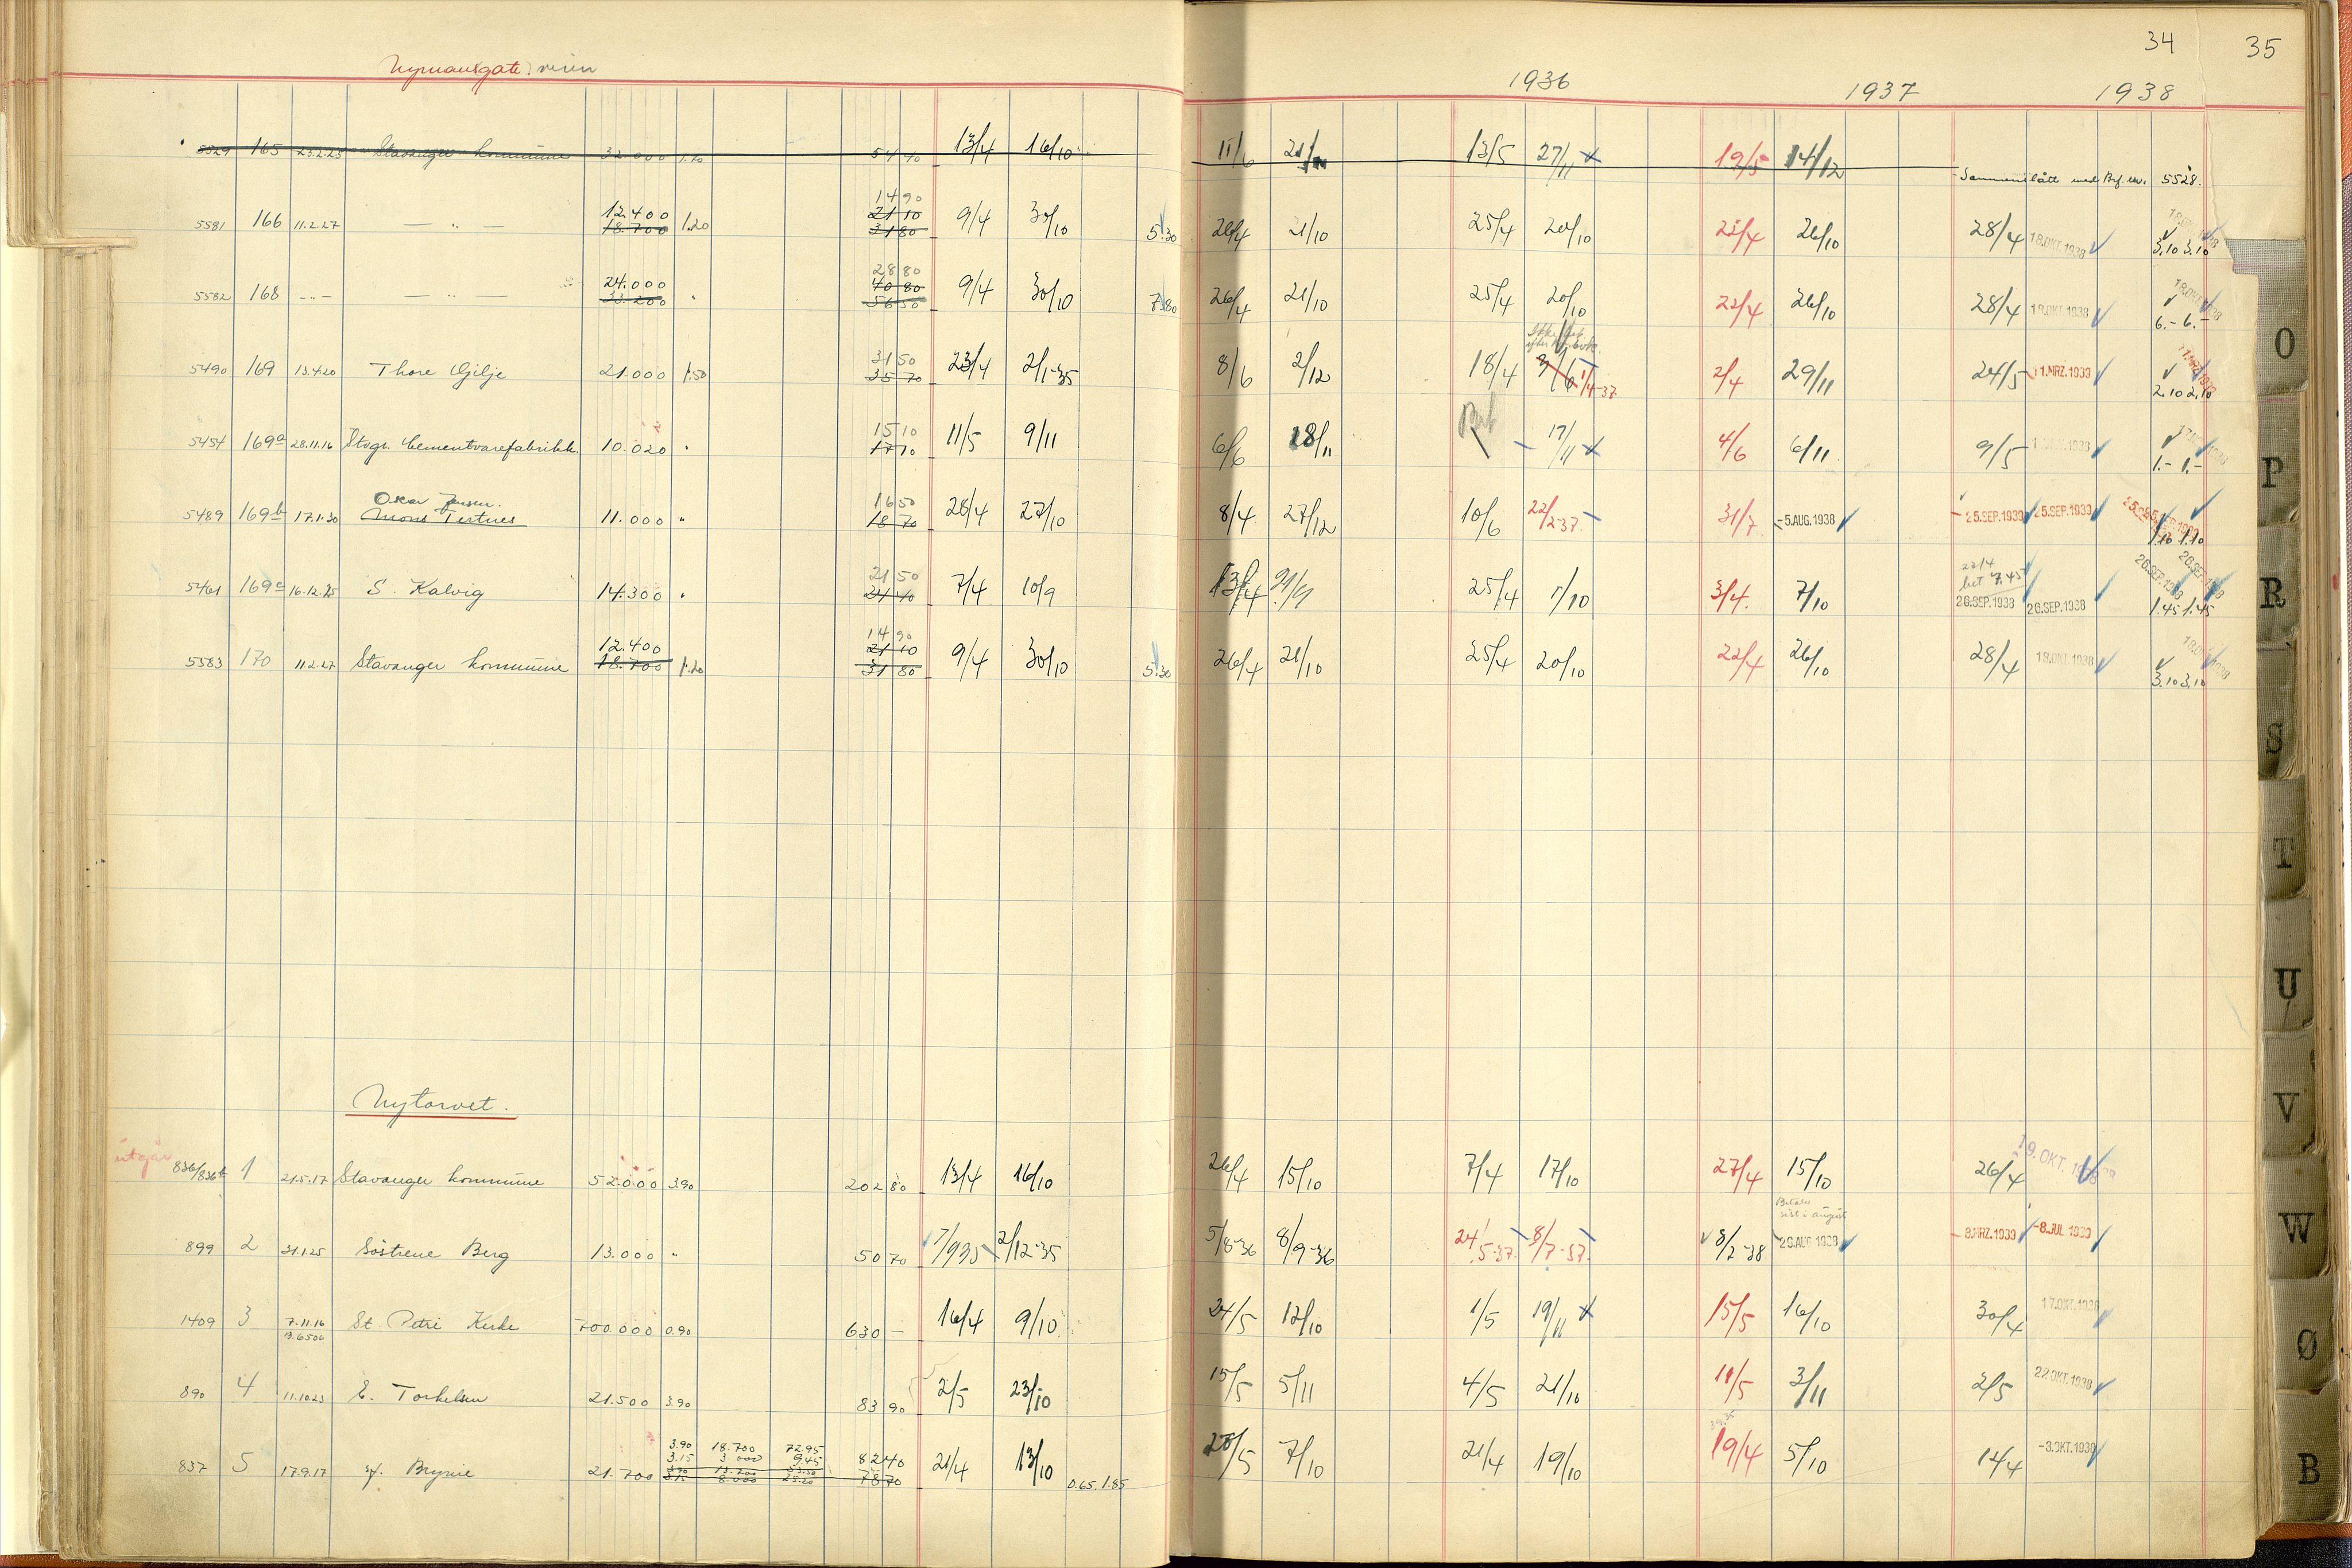 34 35
Nymansgate veien
1936 1937 1938
5529 165 23.2.25 Stavanger kommune 32.000 1.70 54 40 13/4 16/10 11/6 13/5 27/11 19/5 14/12 Sammenslått med Brf. nr. 5528.
14 90
5581 166 11.2.27 — " — 12.400 18.700 1.20 21 10 31 80 9/4 30/10 5.30 26/4 21/10 25/4 20/10 22/4 26/10 28/4 18.OKT.1938 3.10 3.10
28 80
5582 168 — " — — " — 24.000 33.200 " 40 80 56 50 9/4 30/10 7.80 26/4 21/10 25/4 20/10 22/4 26/10 28/4 18.OKT.1938 6.- 6.-
31 50
5490 169 13.4.20 Thore Gilje 21.000 1.50 35 70 23/4 2/1-35 8/6 2/12 18/4 8/6 1/4-37 2/4 29/11 24/5 11.MRZ.1939 2.10 2.10
15 10
5454 169a 28.11.16 Stvgr. Cementvarefabrikk. 10.020 " 17 10 11/5 9/11 6/6 18/11 Bet 17/11 4/6 6/11 9/5 1.- 1.-
Oscar Jensen.
5489 169b 17.1.30 Mons Tertnes 11.000 " 16 50 18 70 28/4 27/10 8/4 27/12 10/6 22/2 37. 31/7 -5.AUG.1938 25.SEP.1939 25.SEP.1939 1.10 1.10
21 50 22/4 bet 7.45
5461 169c 16.12.25 S. Kalvig 14.300 " 24 40 7/4 10/9 13/4 21/9 25/4 1/10 3/4. 7/10 26.SEP.1938 26.SEP.1938 1.45 1.45
14 90
5583 170 11.2.27 Stavanger kommune 12.400 18.700 1.20 21 10 31 80 9/4 30/10 5.30 26/4 21/10 25/4 20/10 22/4 26/10 28/4 18.OKT.1938 3.10 3.10
Nytorvet.
utgår 836/836b 1 21.5.17 Stavanger kommune 52.000 3.90 202 80 13/4 16/10 26/4 15/10 7/4 17/10 27/4 15/10 26/4 19.OKT. 1938
Betales sist i august
899 2 31.1.25 Søstrene Berg 13.000 " 50 70 7/9 35 2/12-35 5/8-36 8/9-36 24/5-37. 8/7-37. 8/2-38 29.AUG 1938 8.MRZ.1939 -8.JUL 1939
1409 3 7.11.16 St. Petri Kirke 700.000 0.90 630 — 16/4 9/10 24/5 12/10 1/5 19/11 15/5 16/10 30/4 17.OKT.1938
890 4 11.10.23 E. Torkelsen 21.500 3.90 83 90 2/5 23/10 15/5 5/11 4/5 21/10 11/5 3/11 2/5 22.OKT.1938
3.90 18.700 72.95
3.15 3.000 9.45 82 40
837 5 17.9.17 Bryne 21.700 3.90 13.700 53.50 3.15 8.000 25.20 78 70 21/4 13/10 0.65. 1.85 28/5 7/10 21/4 19/10 19/4 5/10 14/4 -3.OKT.1938
O
P
R
S
T
U
V
W
Ø
B